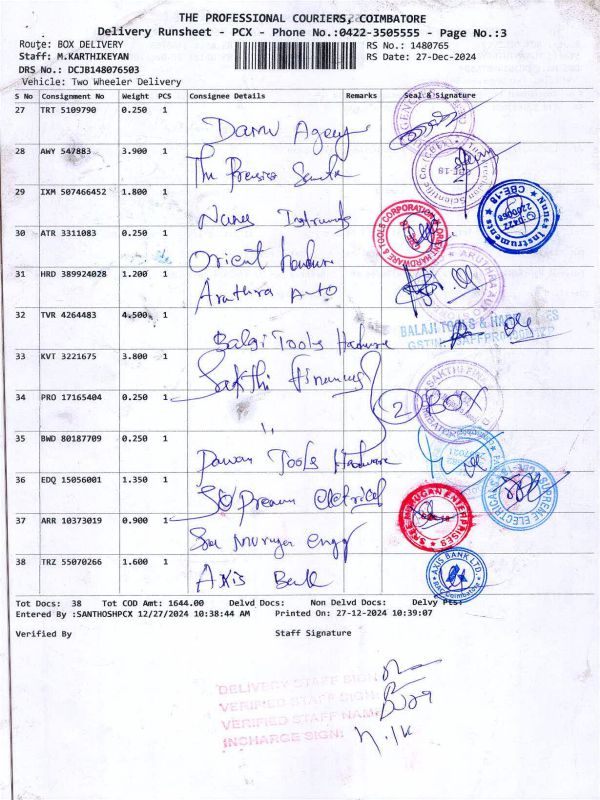 THE PROFESSIONAL COURIERS, COIMBATORE
Delivery Runsheet - PCX - Phone No.:0422-3505555 - Page No.:3
Route: BOX DELIVERY RS No.: 1480765
Staff: M.KARTHIKEYAN RS Date: 27-Dec-2024
DRS No.: DCJB148076503
Vehicle: Two Wheeler Delivery
S No Consignment No Weight PCS Consignee Details Remarks Seal & Signature
27 TRT 5109790 0.250 1
28 AWY 547883 3.900 1
29 IXM 507466452 1.800 1 Instruments Nunes Instruments CBE-18
30 ATR 3311083 0.250 1 Orient Hardware ORIENT HARDWARE & TOOLS CORPORATION
31 HRD 389924028 1.200 1 Aruthra Auto ARUTHRA AUTO
32 TVR 4264483 4.500 1 Balaji Tools Hardware BALAJI TOOLS &
33 KVT 3221675 3.800 1 Sakthi Finances SAKTHI
34 PRO 17165404 0.250 1 " 2 BOX
35 BWD 80187709 0.250 1 Pawan Tools Hardware
36 EDQ 15056001 1.350 1 Supreme Eletrical SUPREME ELECTRICAL
37 ARR 10373019 0.900 1 Sree Murugan Engg SREE MURUGAN ENTERPRISES
38 TRZ 55070266 1.600 1 Axis Bank AXIS BANK LTD. Coimbatore
Tot Docs: 38 Tot COD Amt: 1644.00 Delvd Docs: Non Delvd Docs: Delvy Pts:
Entered By :SANTHOSHPCX 12/27/2024 10:38:44 AM Printed On: 27-12-2024 10:39:07
Verified By Staff Signature
DELIVERY STAFF SIGN:
VERIFIED STAFF SIGN:
VERIFIED STAFF NAME:
INCHARGE SIGN: